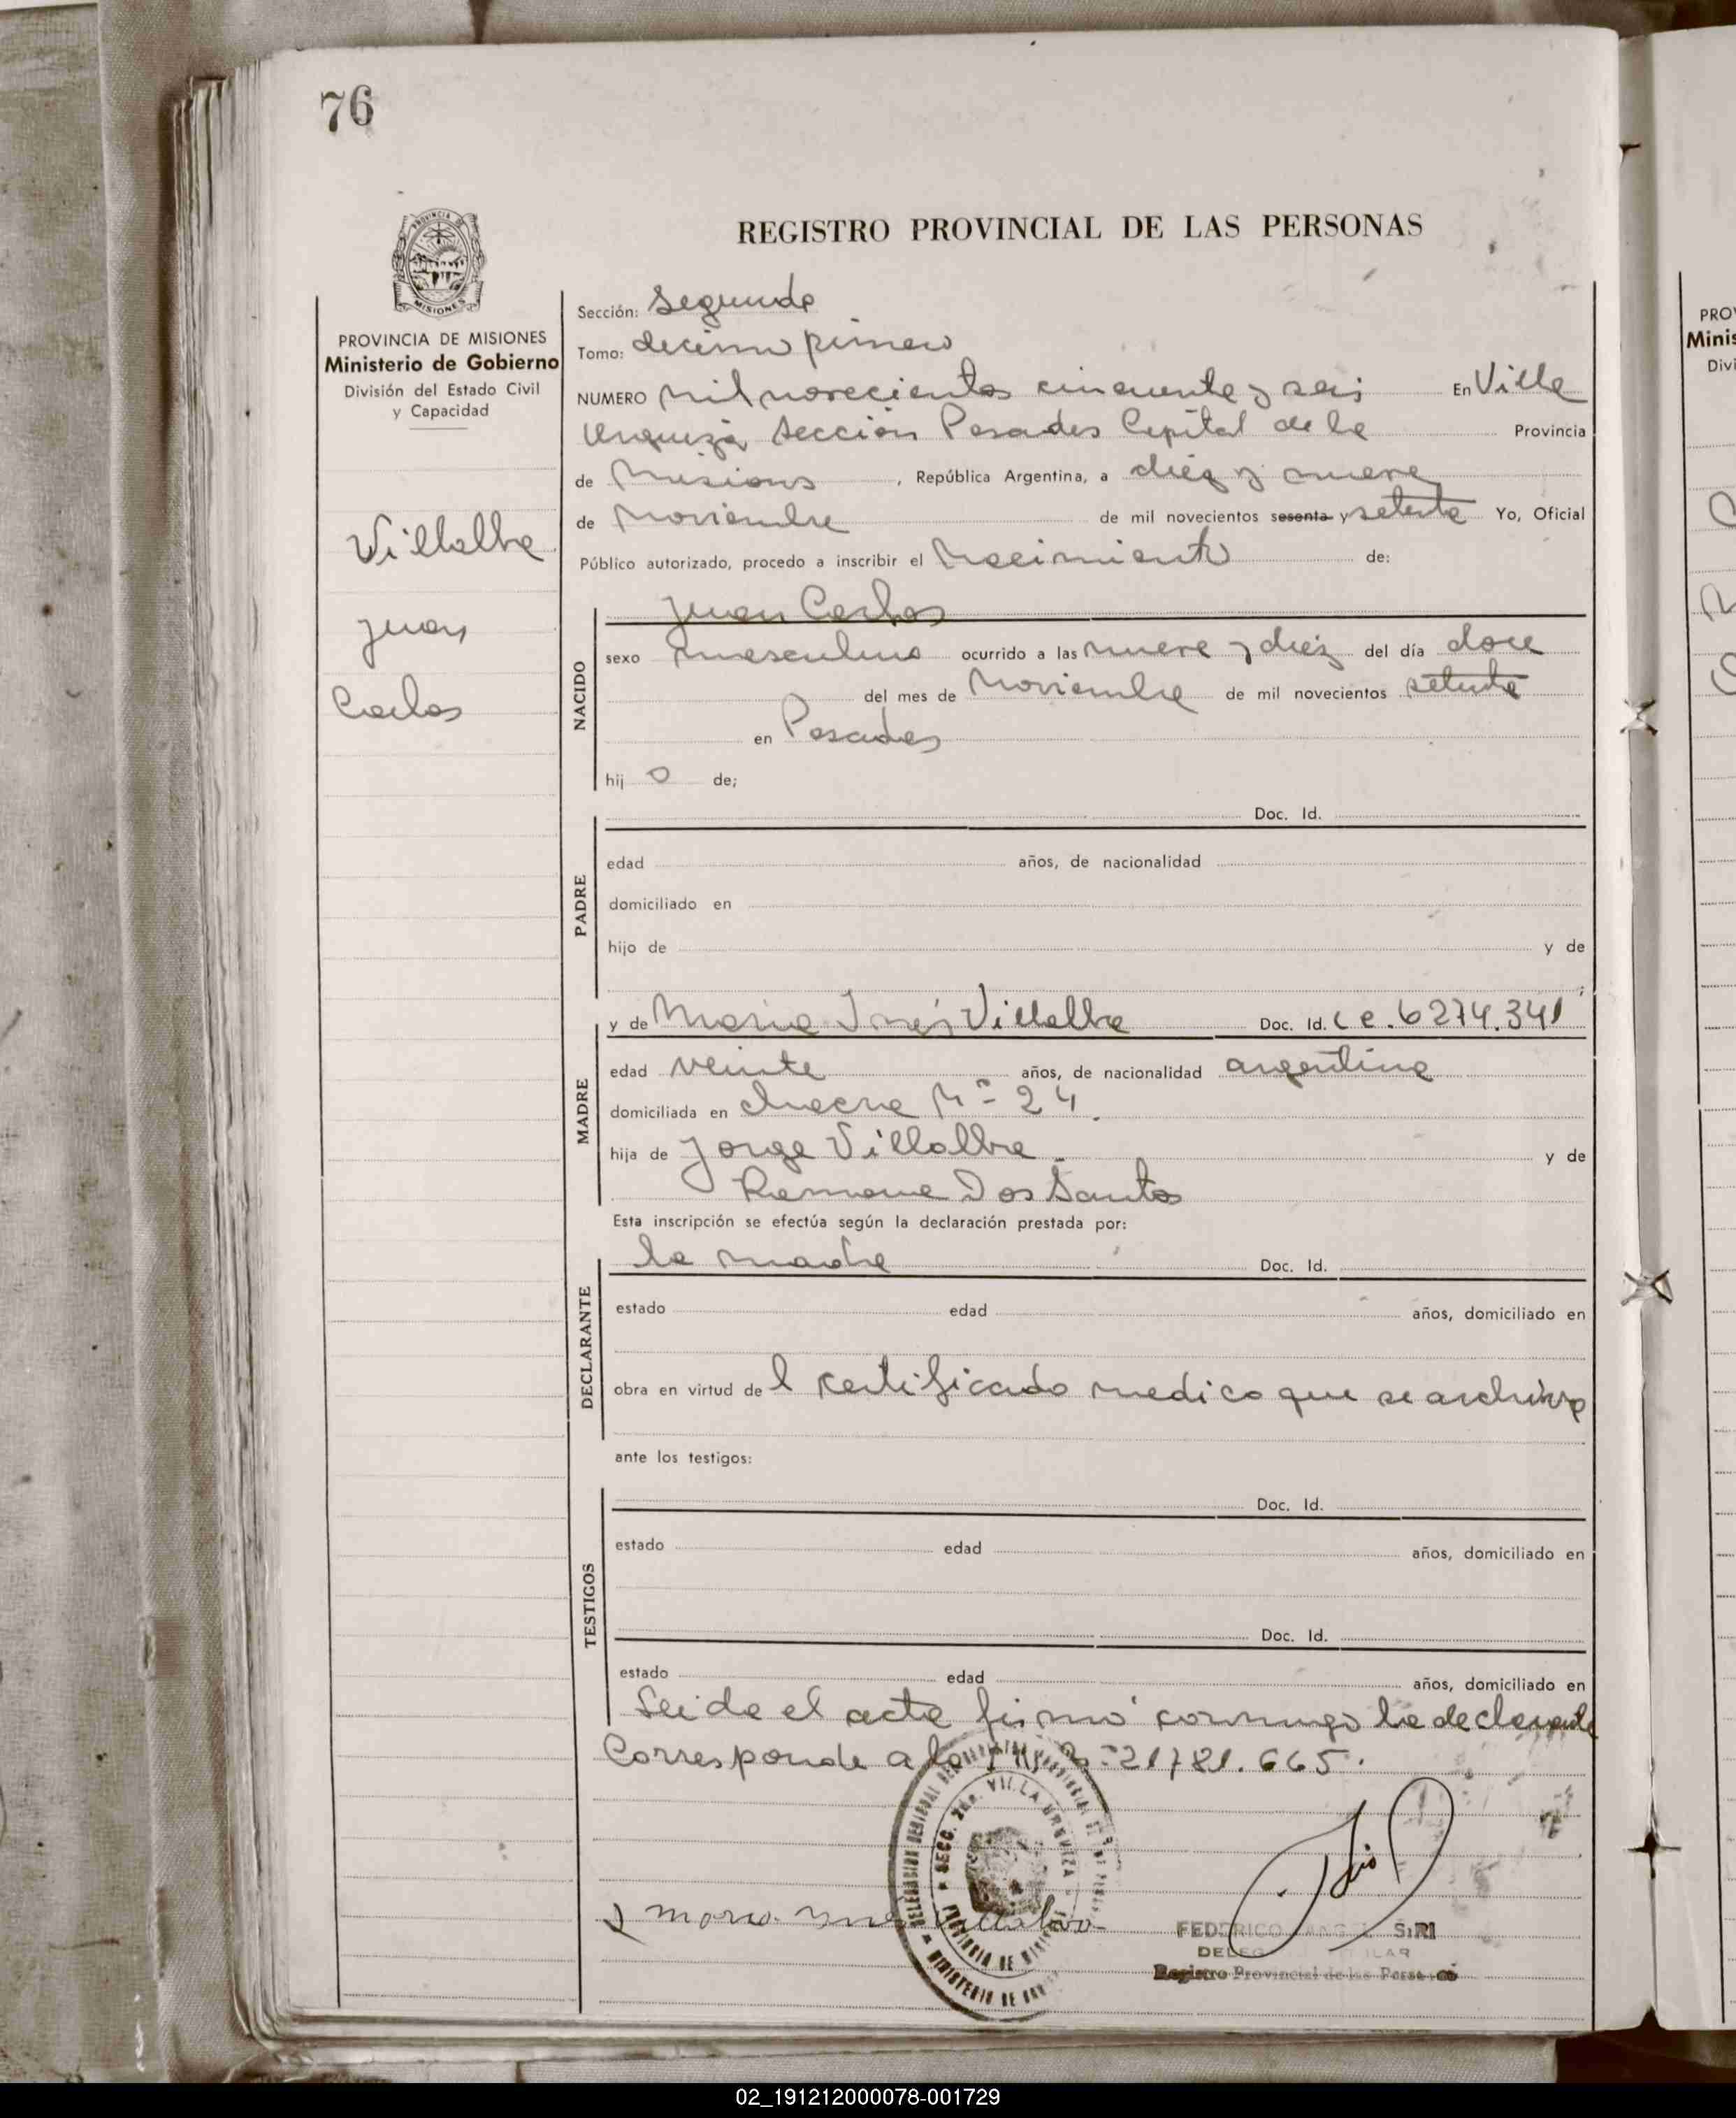 76
PROVINCIA DE MISIONES
Ministerio de Gobierno
División del Estado Civil
y Capacidad
Villalba
Juan
Carlos
REGISTRO PROVINCIAL DE LAS PERSONAS
Sección: Segunda
Tomo: decimo primero
NUMERO Mil novecientos cincuenta y seis En Villa
Urquiza Sección Posadas Capital de la Provincia
de Misiones, República Argentina, a diez y nueve
de Noviembre de mil novecientos sesenta y setenta Yo, Oficial
Público autorizado, procedo a inscribir el Nacimiento de:
NACIDO
Juan Carlos
sexo masculino ocurrido a las nueve y diez del día doce
del mes de Noviembre de mil novecientos setenta
en Posadas
hij o de;
PADRE
Doc. Id.
edad años, de nacionalidad
domiciliado en
hijo de y de
;
MADRE
y de Maria Inés Villalba Doc. Id. C e. 6274.341
edad veinte años, de nacionalidad argentina
domiciliada en chacra Nº 24.
hija de Jorge Villalba y de
Ramona Dos Santos
Esta inscripción se efectúa según la declaración prestada por:
DECLARANTE
la madre Doc. Id.
estado edad años, domiciliado en
obra en virtud de l certificado medico que se archiva
ante los testigos:
TESTIGOS
Doc. Id.
estado edad años, domiciliado en
Doc. Id.
estado edad años, domiciliado en
Leida el acta firmó conmigo la declarante
Corresponde a la 21781.665.
SECC. 2da. VILLA URQUIZA
PROVINCIA DE MISIONES
MINISTERIO DE
Maria Inés Villalba
FEDERICO SIRI
Registro Provincial de las Personas
PROV
Minis
Divi
02_191212000078-001729